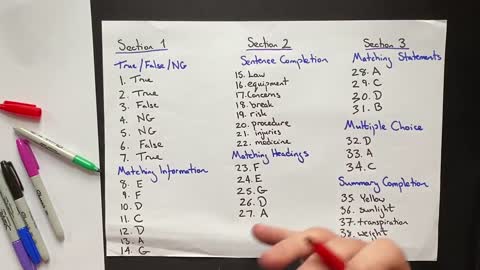 Section 1
True/False/NG
1. True
2. True
3. False
4. NG
5. NG
6. False
7. True
Matching Information
8. E
9. F
10. D
11. C
12. D
13. A
14. G
Section 2
Sentence Completion
15. Law
16. equipment
17. Concerns
18. break
19. risk
20. procedure
21. injuries
22. medicine
Matching Headings
23. F
24. E
25. G
26. D
27. A
Section 3
Matching Statements
28. A
29. C
30. D
31. B
Multiple Choice
32. D
33. A
34. C
Summary Completion
35. Yellow
36. sunlight
37. transpiration
38. weight